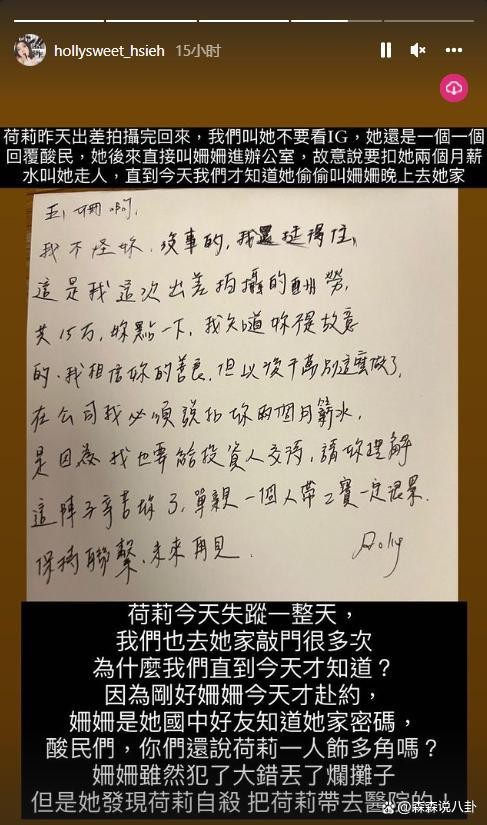 hollysweet_hsieh 15小时
荷莉昨天出差拍攝完回來，我們叫她不要看IG，她還是一個一個
回覆酸民，她後來直接叫姍姍進辦公室，故意說要扣她兩個月薪
水叫她走人，直到今天我們才知道她偷偷叫姍姍晚上去她家
姍啊，
我不怪妳，沒事的，我還挺得住，
這是我這次出差拍攝的酬勞，
共15万，妳點一下，我知道妳不是故意
的，我相信妳的善良，但以後千萬別這麼做了，
在公司我必須說扣妳兩個月薪水，
是因為我也要給投資人交待，請妳理解
這陣子辛苦妳了，單親一個人帶2寶一定很累
保持聯繫、未來再見
Holly
荷莉今天失蹤一整天，
我們也去她家敲門很多次
為什麼我們直到今天才知道？
因為剛好姍姍今天才赴約，
姍姍是她國中好友知道她家密碼，
酸民們，你們還說荷莉一人飾多角嗎？
姍姍雖然犯了大錯丟了爛攤子
但是她發現荷莉自殺 把荷莉帶去醫院的！
@森森说八卦